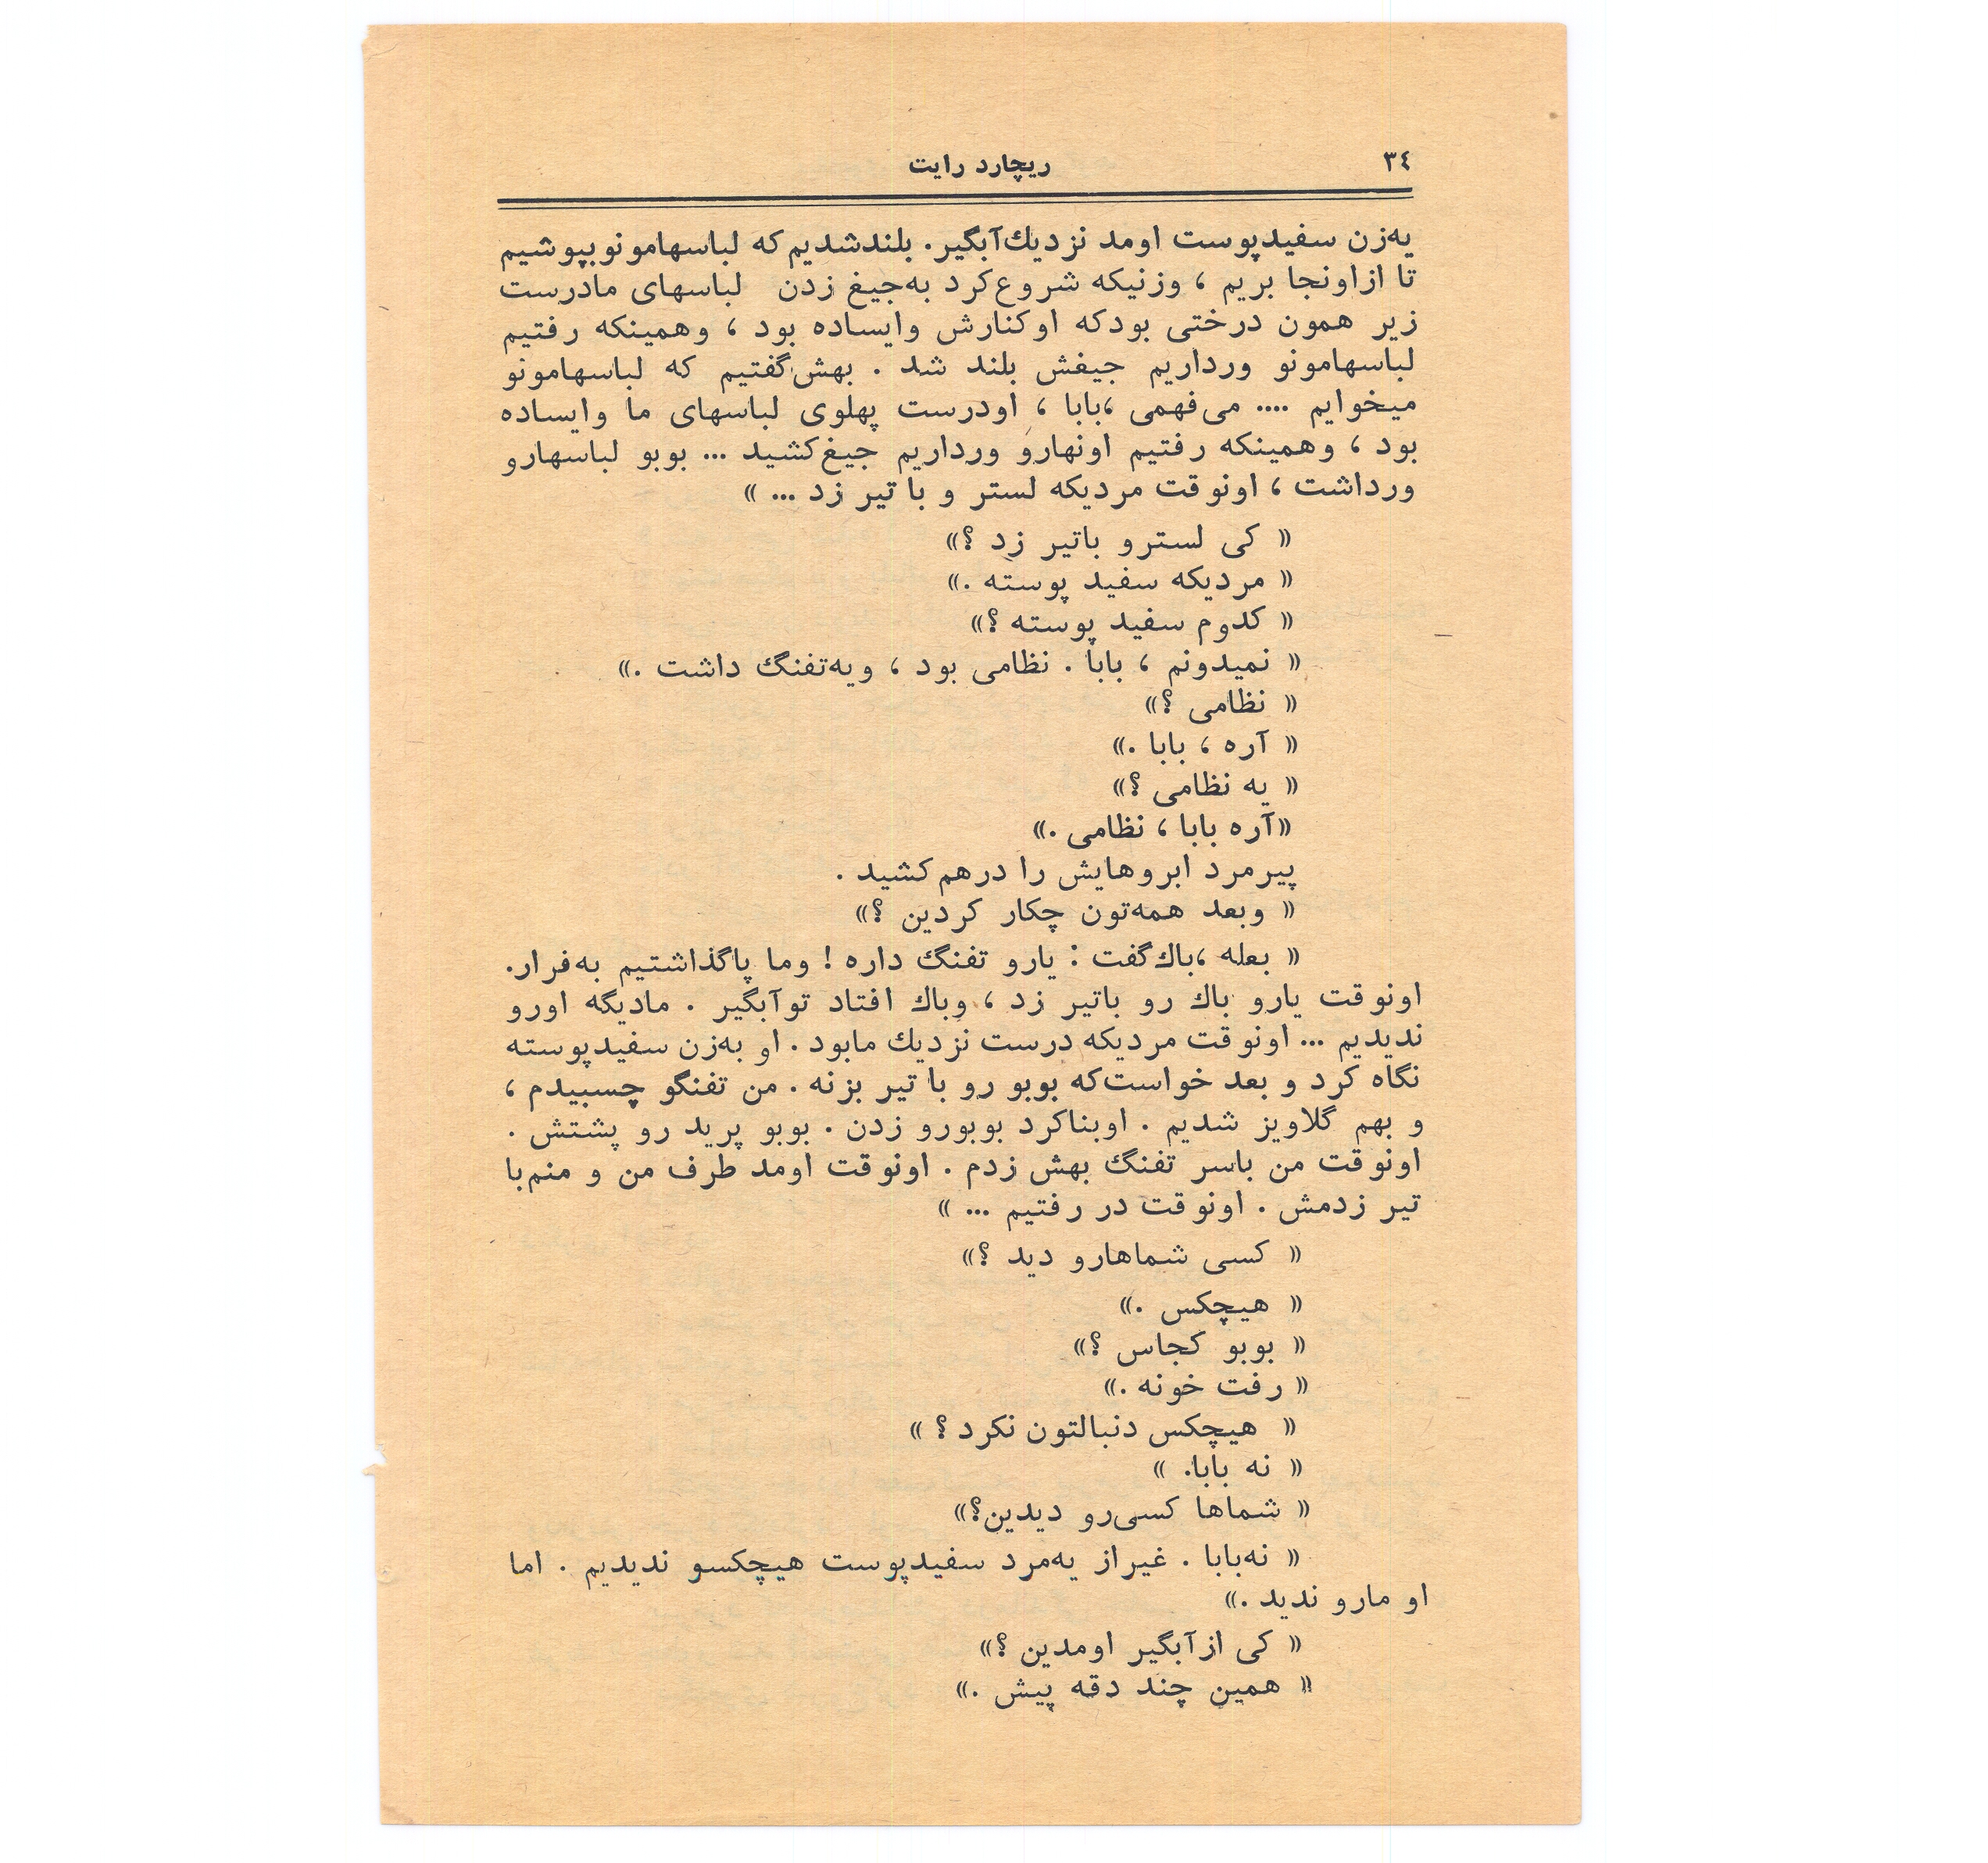 ٣٤
ریچارد رایت
یه‌زن سفیدپوست اومد نزدیك‌آبگیر. بلندشدیم که لباسهامونو بپوشیم
تا ازاونجا بریم ، وزنیکه شروع‌کرد به‌جیغ زدن لباسهای مادرست
زیر همون درختی بودکه اوکنارش وایساده بود ، وهمینکه رفتیم
لباسهامونو ورداریم جیغش بلند شد . بهش‌گفتیم که لباسهامونو
میخوایم .... می‌فهمی ،بابا ، اودرست پهلوی لباسهای ما وایساده
بود ، وهمینکه رفتیم اونهارو ورداریم جیغ‌کشید ... بوبو لباسهارو
ورداشت ، اونوقت مردیکه لستر و با تیر زد ... »
« کی لسترو باتیر زد ؟»
« مردیکه سفید پوسته .»
« کدوم سفید پوسته ؟»
« نمیدونم ، بابا . نظامی بود ، ویه‌تفنگ داشت .»
« نظامی ؟»
« آره ، بابا .»
« یه نظامی ؟»
«آره بابا ، نظامی .»
پیرمرد ابروهایش را درهم‌کشید .
« وبعد همه‌تون چکار کردین ؟»
« بعله ،باك‌گفت : یارو تفنگ داره ! وما پاگذاشتیم به‌فرار.
اونوقت یارو باك رو باتیر زد ، وباك افتاد توآبگیر . مادیگه اورو
ندیدیم ... اونوقت مردیکه درست نزدیك مابود . او به‌زن سفیدپوسته
نگاه کرد و بعد خواست‌که بوبو رو با تیر بزنه . من تفنگو چسبیدم ،
و بهم گلاویز شدیم . اوبناکرد بوبورو زدن . بوبو پرید رو پشتش .
اونوقت من باسر تفنگ بهش زدم . اونوقت اومد طرف من و منم‌با
تیر زدمش . اونوقت در رفتیم ... »
« کسی شماهارو دید ؟»
« هیچکس .»
« بوبو کجاس ؟»
« رفت خونه .»
« هیچکس دنبالتون نکرد ؟ »
« نه بابا. »
« شماها کسی‌رو دیدین؟»
« نه‌بابا . غیراز یه‌مرد سفیدپوست هیچکسو ندیدیم . اما
او مارو ندید .»
« کی ازآبگیر اومدین ؟»
« همین چند دقه پیش .»